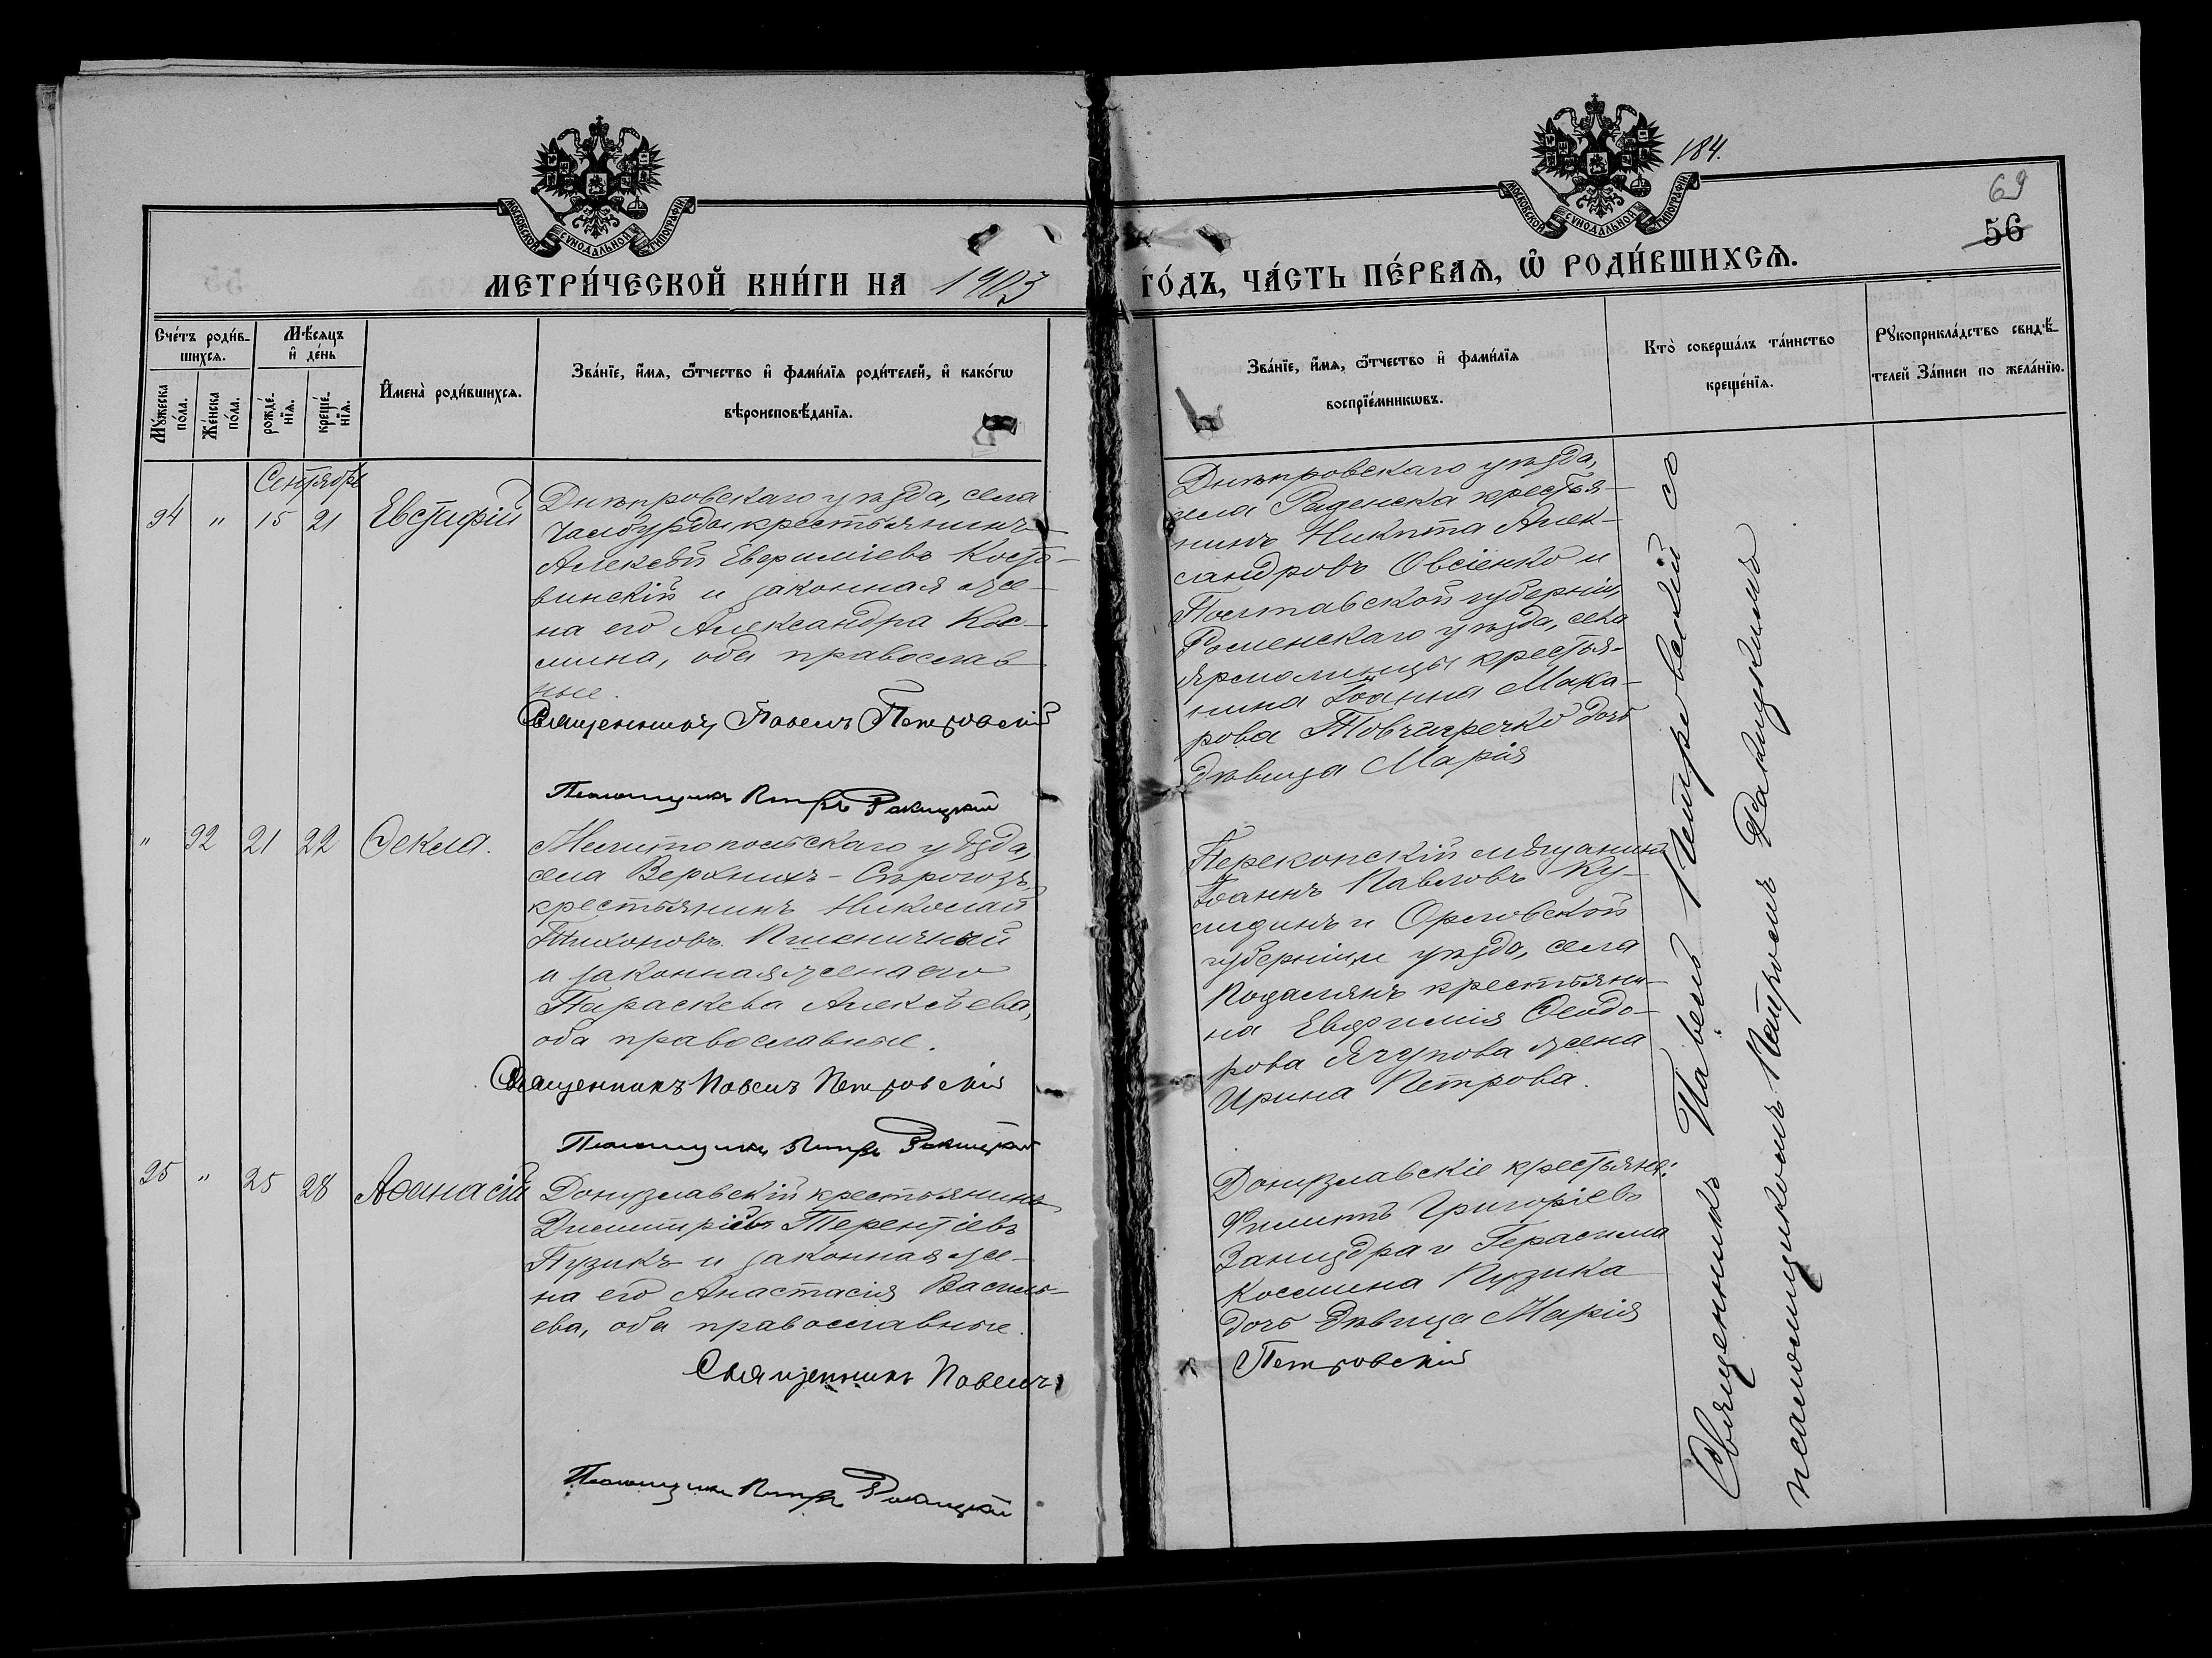 184.
69
56
МОСКОВСКОЙ СѴНОДАЛЬНОЙ ТИПОГРАФІИ
МОСКОВСКОЙ СѴНОДАЛЬНОЙ ТИПОГРАФІИ
МЕТРИ́ЧЕСКОЙ КНИ́ГИ НА 1903
ГО́ДЪ, ЧА́СТЬ ПЕ́РВАѦ, Ѡ҆ РОДИ́ВШИХСѦ.
Счéтъ роди́в-
шихсѧ.
Мꙋ́жеска
по́ла.
Же́нска
по́ла.
Мѣ́сѧцъ
и҆ де́нь
рожде́-
нїѧ.
креще́-
нїѧ.
И҆мена̀ роди́вшихсѧ.
Зва́нїе, и҆́мѧ, ѻ҆́тчество и҆ фами́лїѧ роди́телей, и҆ како́гѡ
вѣроисповѣ́данїѧ.
Зва́нїе, и҆́мѧ, ѻ҆́тчество и҆ фами́лїѧ
воспрїе́мникѡвъ.
Кто̀ соверша́лъ та́инство
креще́нїѧ.
Рꙋкоприкла́дство свидѣ́-
телей за́писи по жела́нїю.
Сентябрь
94 " 15 21 Евстафій
Днѣпровскаго уѣзда, села
Чалбурды крестьянинъ
Алексѣй Евфиміевъ
и законная же-
на его Александра Кос-
мина, оба православ
ные.
Священникъ Павелъ Петровскій
Псаломщикъ Петръ Ракицкій
Днѣпровскаго уѣзда,
села Раденска крестья-
нинъ Никита Алек-
сандровъ Овсіенко и
Полтавской губерніи,
Роменскаго уѣзда, села
Ярмолинцы крестья-
нина Іоанна Мака-
рова дочь
дѣвица Марія
" 92 21 22 Ѳекла.
Мелитопольскаго уѣзда,
села Верхнихъ-Сѣрогозъ,
крестьянинъ Николай
Тихоновъ Пшеничный
и законная жена его
Параскева Алексѣева,
оба православные.
Священникъ Павелъ Петровскій
Псаломщикъ Петръ Ракицкій
Перекопскій мѣщанинъ
Іоаннъ Павловъ Ку-
и Орловской
губерніи, и уѣзда, села
крестьяни-
на Евфимія Ѳеодо-
рова Ячупова жена
Ирина Петрова.
95 " 25 28 Аѳанасій
Донузлавскій крестьянинъ
Димитрій Терентіевъ
Пузикъ и законная же-
на его Анастасія Василь-
ева, оба православные.
Священникъ Павелъ
Петровскій
Псаломщикъ Петръ Ракицкій
Донузлавскіе крестьяне:
Филиппъ Григоріевъ
и Герасима
Космина Пузика
дочь дѣвица Марія
Священникъ Павелъ Петровскій со
псаломщикомъ Петромъ Ракицкимъ